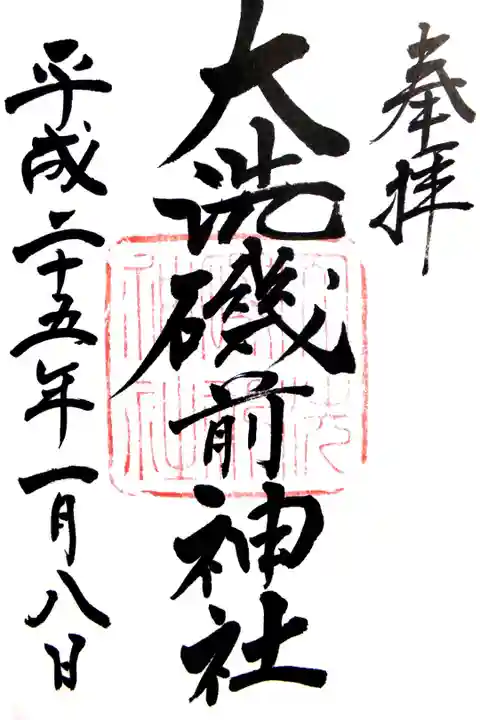 奉拝
大洗磯前神社
平成二十五年一月八日